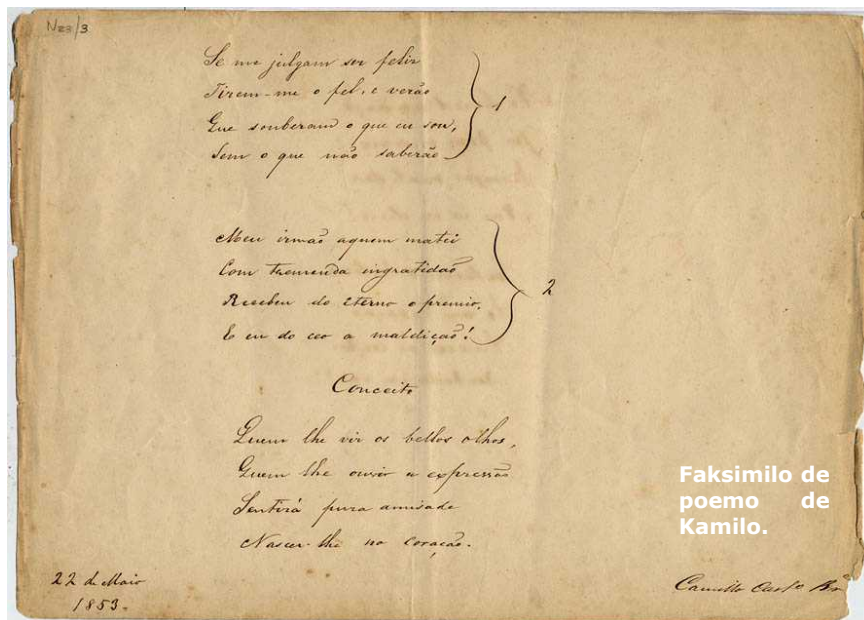 N23/3
Se me julgam ser feliz
Tirem-me o fel, e verão
Que souberam o que eu sou,
Sem o que não saberão
1
Meu irmão aquem matei
Com tremenda ingratidão
Recebeu do Eterno o premio,
E eu do ceo a maldição!
2
Conceito
Quem lhe vir os bellos olhos,
Quem lhe ouvir a expressão
Sentirá pura amisade
Nascer-lhe no coração.
22 de Maio
1853.
Camillo Castº Brº
Faksimilo de
poemo de
Kamilo.